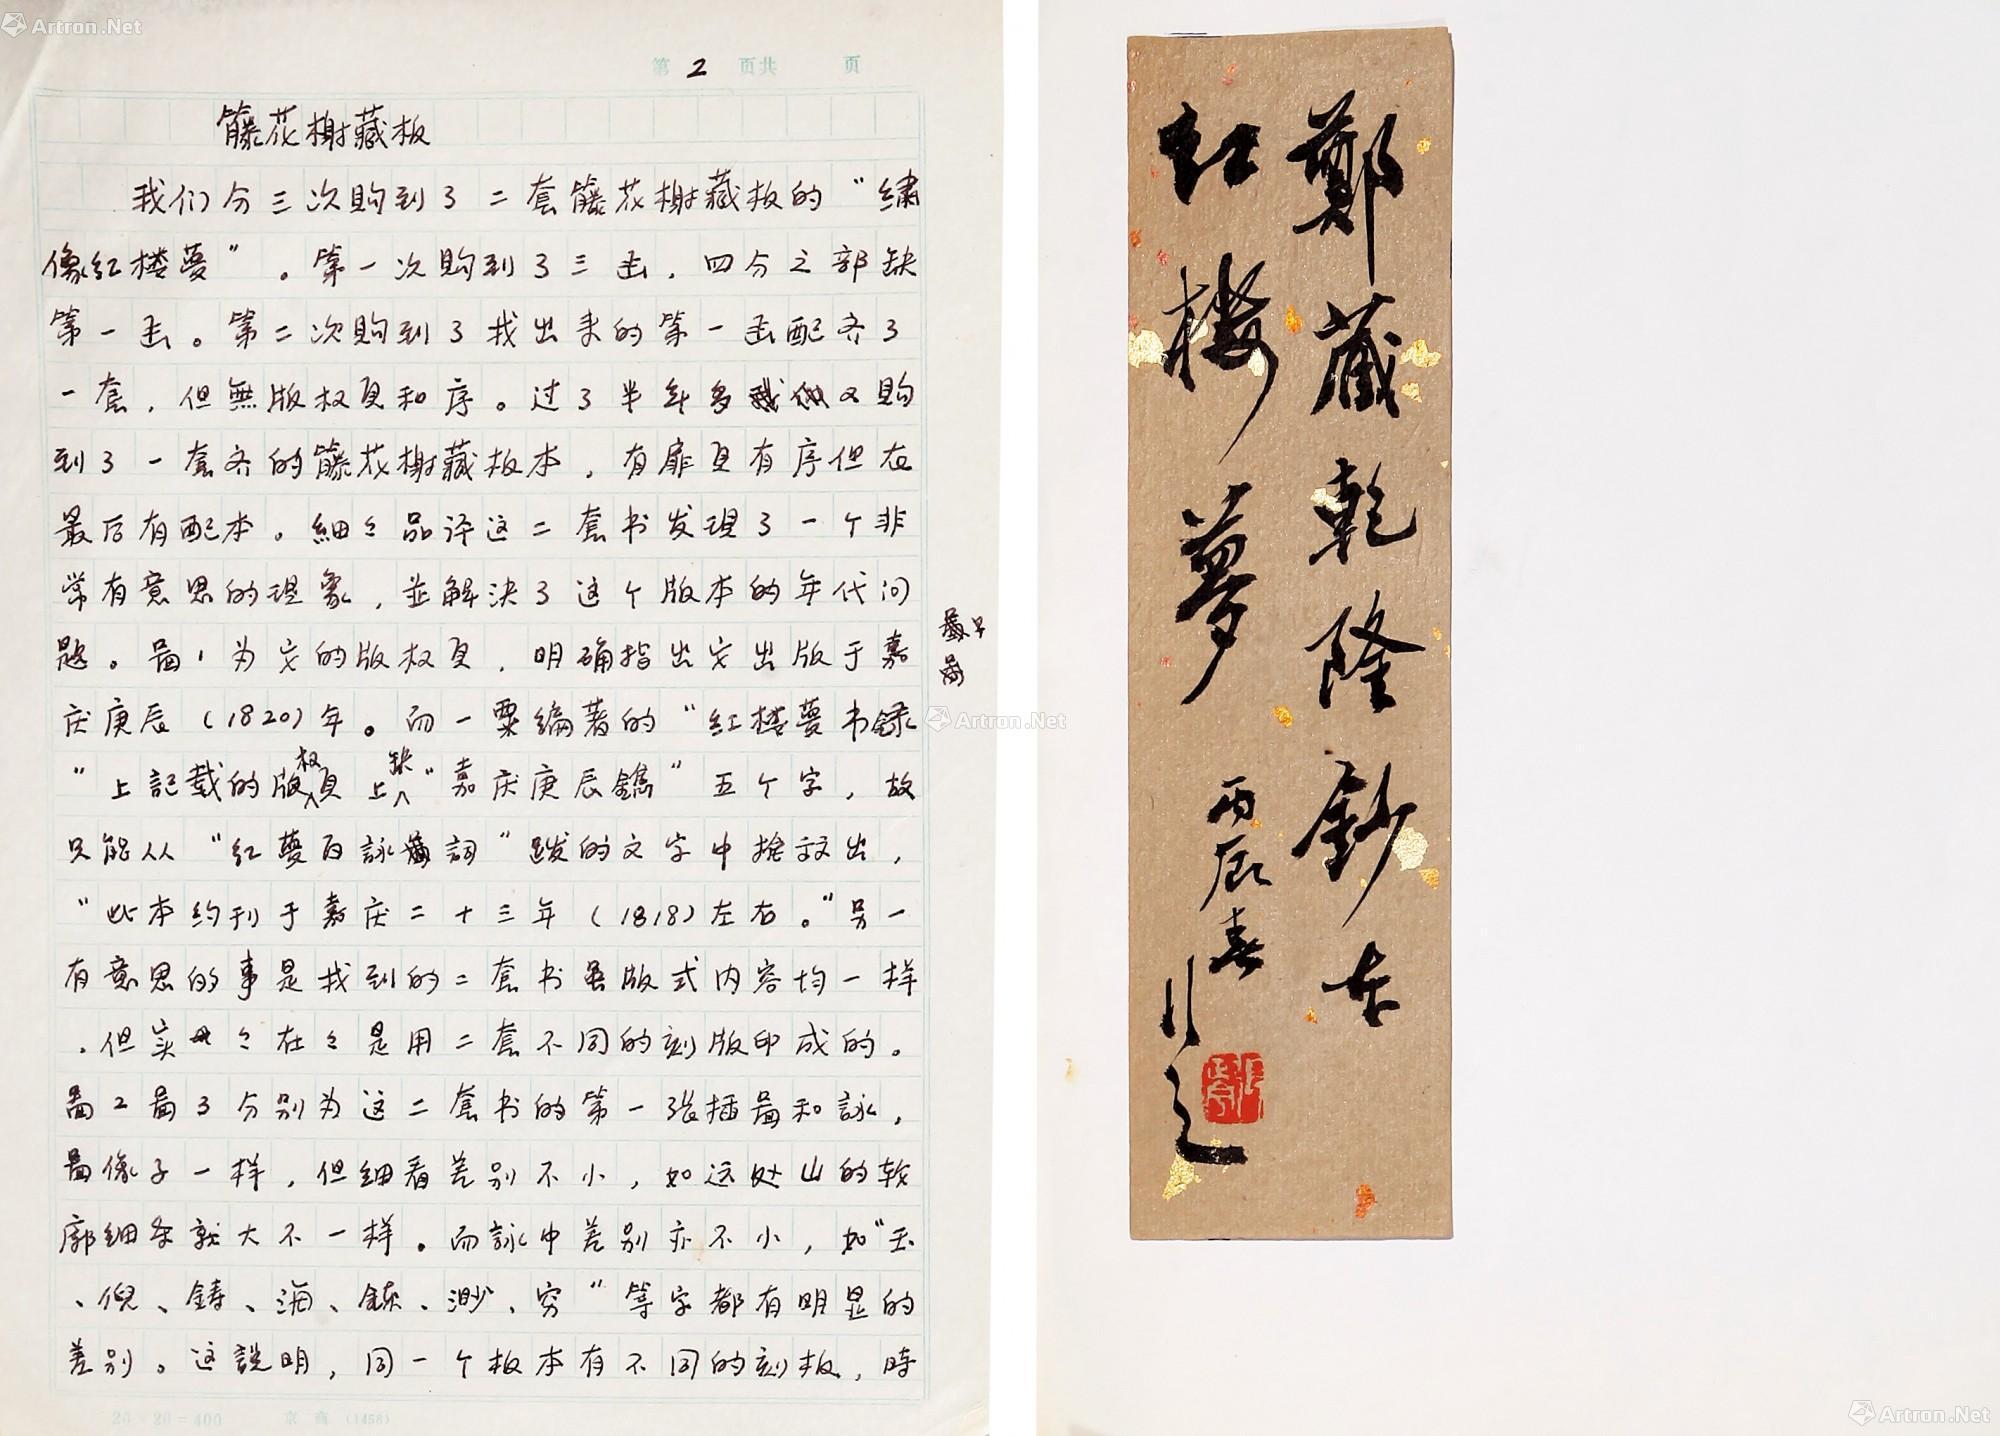 Artron.Net
第2页共 页
籐花榭藏板
我们分三次购到了二套籐花榭藏板的“繡
像红楼夢”。第一次购到了三击,四分之部缺
第一击。第二次购到了我出来的第一击配齐了
一套,但無版权頁和序。过了半年多我们又购
到了一套齐的籐花榭藏板本,有扉頁有序但在
最后有配本。細々品评这二套书发現了一个非
常有意思的現象,並解決了这个版本的年代问
题。啚1为它的版权頁,明确指出它出版于嘉
庆庚辰(1820)年。而一粟编著的“红楼夢书錄
”上記载的版权頁上缺“嘉庆庚辰鐫”五个字,故
只能从“红夢百詠詞”跋的文字中推敲出,
“此本约刊于嘉庆二十三年(1818)左右。”另一
有意思的事是找到的二套书虽版式内容均一样
,但实々在々是用二套不同的刻版印成的。
啚2啚3分别为这二套书的第一张插啚和詠,
啚像子一样,但細看差别不小,如远处山的轮
廓細条就大不一样。而詠中差别亦不小,如“玉
、倪、鋳、海、鍊、渺、穷”等字都有明显的
差别。这説明,同一个板本有不同的刻板,時
20×20=400 京商(1458)
鄭藏乾隆鈔本
红楼夢
丙辰春
Artron.Net
Artron.Net